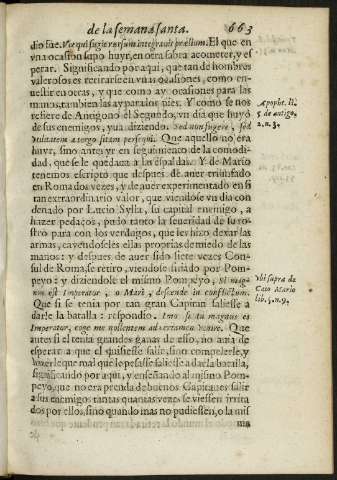 de la semana santa. 663
dio sue. Vir qui fugit rursum integrauit prælium. El que en
vna ocasion supo huyr, en otra sabra acometer, y es
perar. Significando por aqui, que tan de hombres
valerosos es retirarse en vnas ocasiones, como en-
uestir en otras, y que como ay ocasiones para las
manos, tambien las ay para los pies. Y como se nos
refiere de Antigono el Segundo, vn dia que huyò
de sus enemigos, yua diziendo. Sed non fugere, sed
vtilitatem à tergo sitam persequi. Que aquello no era
huyr, sino antes yr en seguimiento de la comodi-
dad, que se le quedaua a las espaldas. Y de Mario
tenemos escripto que despues de auer triumfado
en Roma dos vezes, y de auer experimentado en si
tan extraordinario valor, que viendose vn dia con
denado por Lucio Sylla, su capital enemigo, a
hazer pedaços, pudo tanto la seueridad de su ro-
stro para con los verdugos, que les hizo dexar las
armas, cayendoseles ellas proprias de miedo de las
manos: y despues de auer sido siete vezes Con-
sul de Roma, se retiro, viendose sitiado por Pom-
peyo: y diziendole el mismo Pompeyo, Si mag-
nus est Imperator, o Mari, descende in conflictum.
Que si se tenia por tan gran Capitan saliesse a
darle la batalla: respondio. Imo se tu magnus es
Imperator, coge me nollentem ad certamen venire. Que
antes si el tenia grandes ganas de esso, no auia de
esperar a que el quisiesse salir, sino compelerle, y
hazerle que mal que le pesasse saliesse a darle la batalla,
significando por aqui, y enseñando al mismo Pom-
peyo, que no era prenda de buenos Capitanes salir
a sus enemigos tantas quantas vezes se viessen irrita
dos por ellos, sino quando mas no pudiessen, o la mis
ma
Apophe. li.
5 de antigo,
2. n. 3.
Vbi supra de
Caio Mario
lib. 5. n. 9.